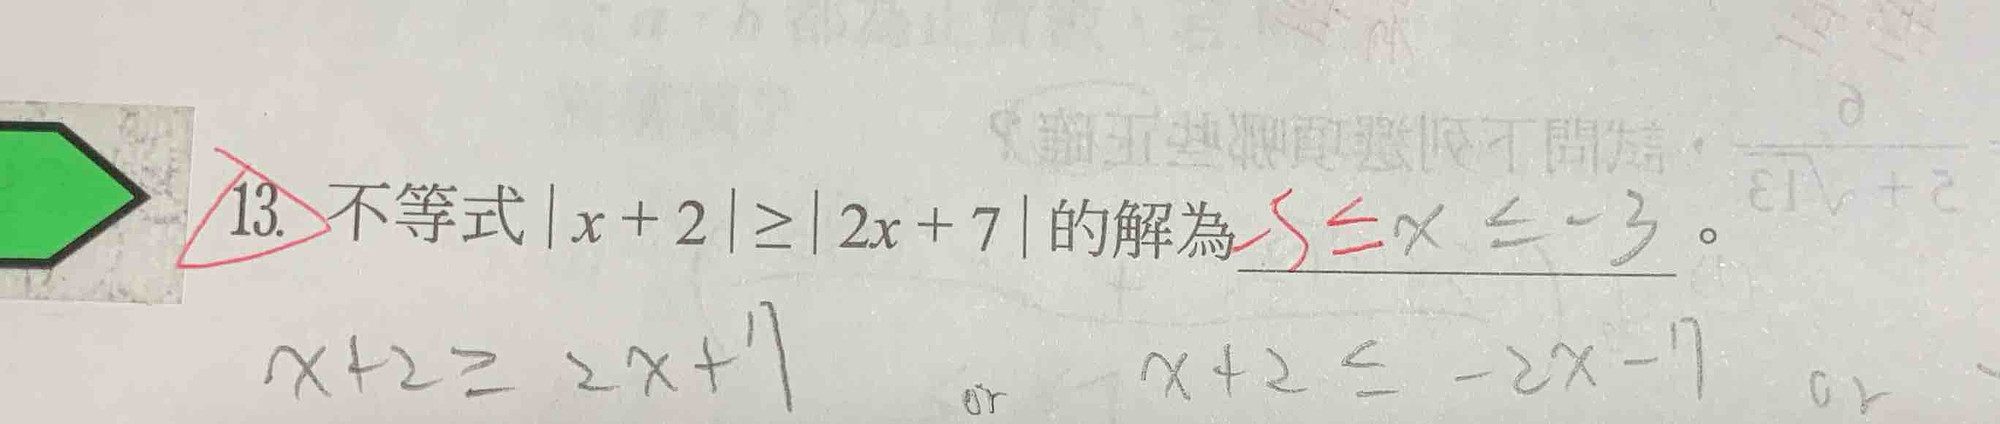 13. 不等式|x+2|≥|2x+7|的解為-5≤x≤-3。
x+2≥2x+7 or x+2≤-2x-7 or